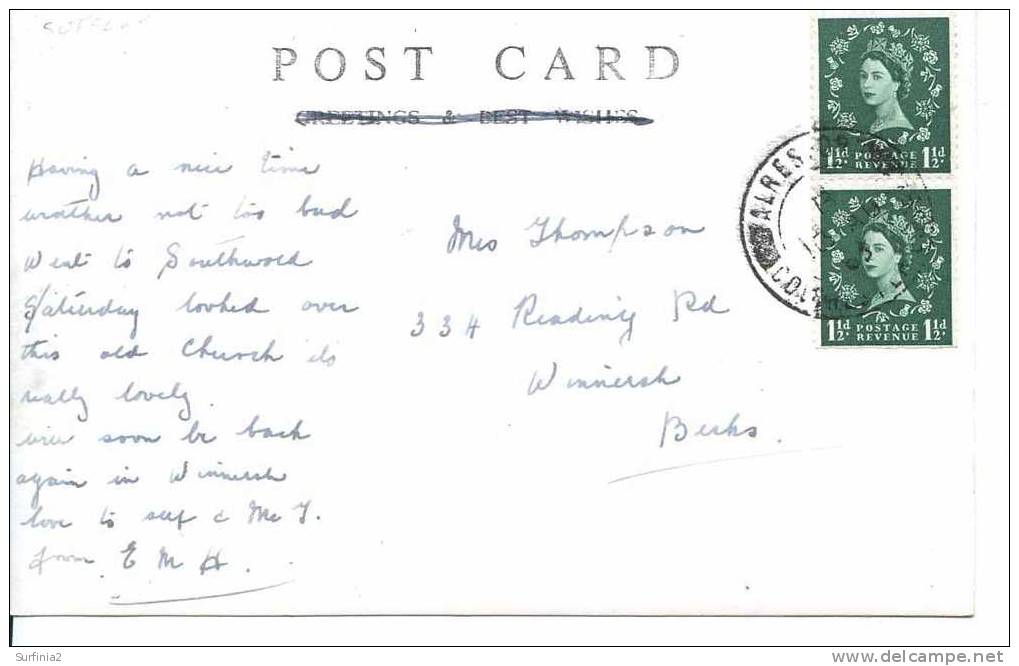 POST CARD
GREETINGS & BEST WISHES
Having a nice time
weather not too bad
Went to Southwold
Saturday looked over
this old Church its
really lovely
will soon be back
again in Winnersh
love to self & Mr T.
from E M H.
Mrs Thompson
334 Reading Rd
Winnersh
Berks.
1½d POSTAGE REVENUE 1½d
1½d POSTAGE REVENUE 1½d
ALRES
Surfinia2
delcampe.net